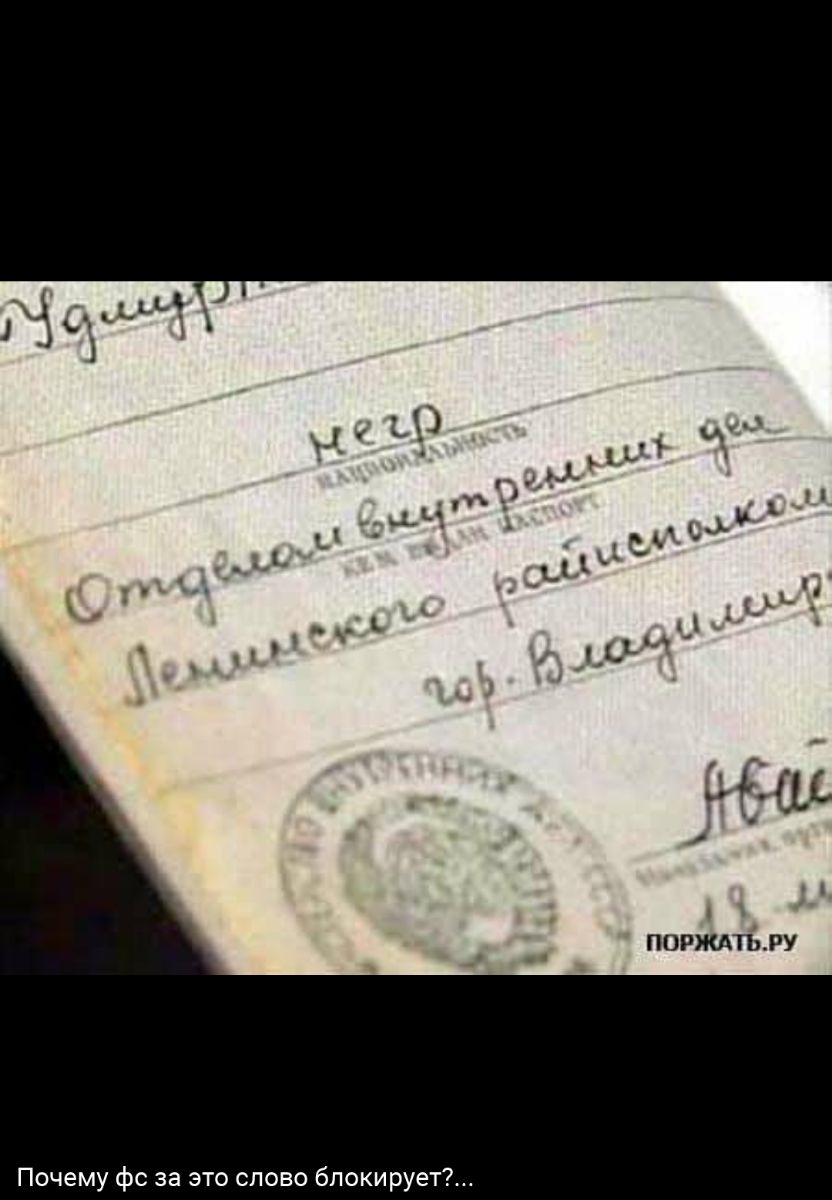 Удмурт
негр
НАЦИОНАЛЬНОСТЬ
Отделом внутренних дел
КЕМ ВЫДАН ПАСПОРТ
Ленинского райисполком
гор. Владимир
18
ПОРЖАТЬ.РУ
Почему фс за это слово блокирует?...